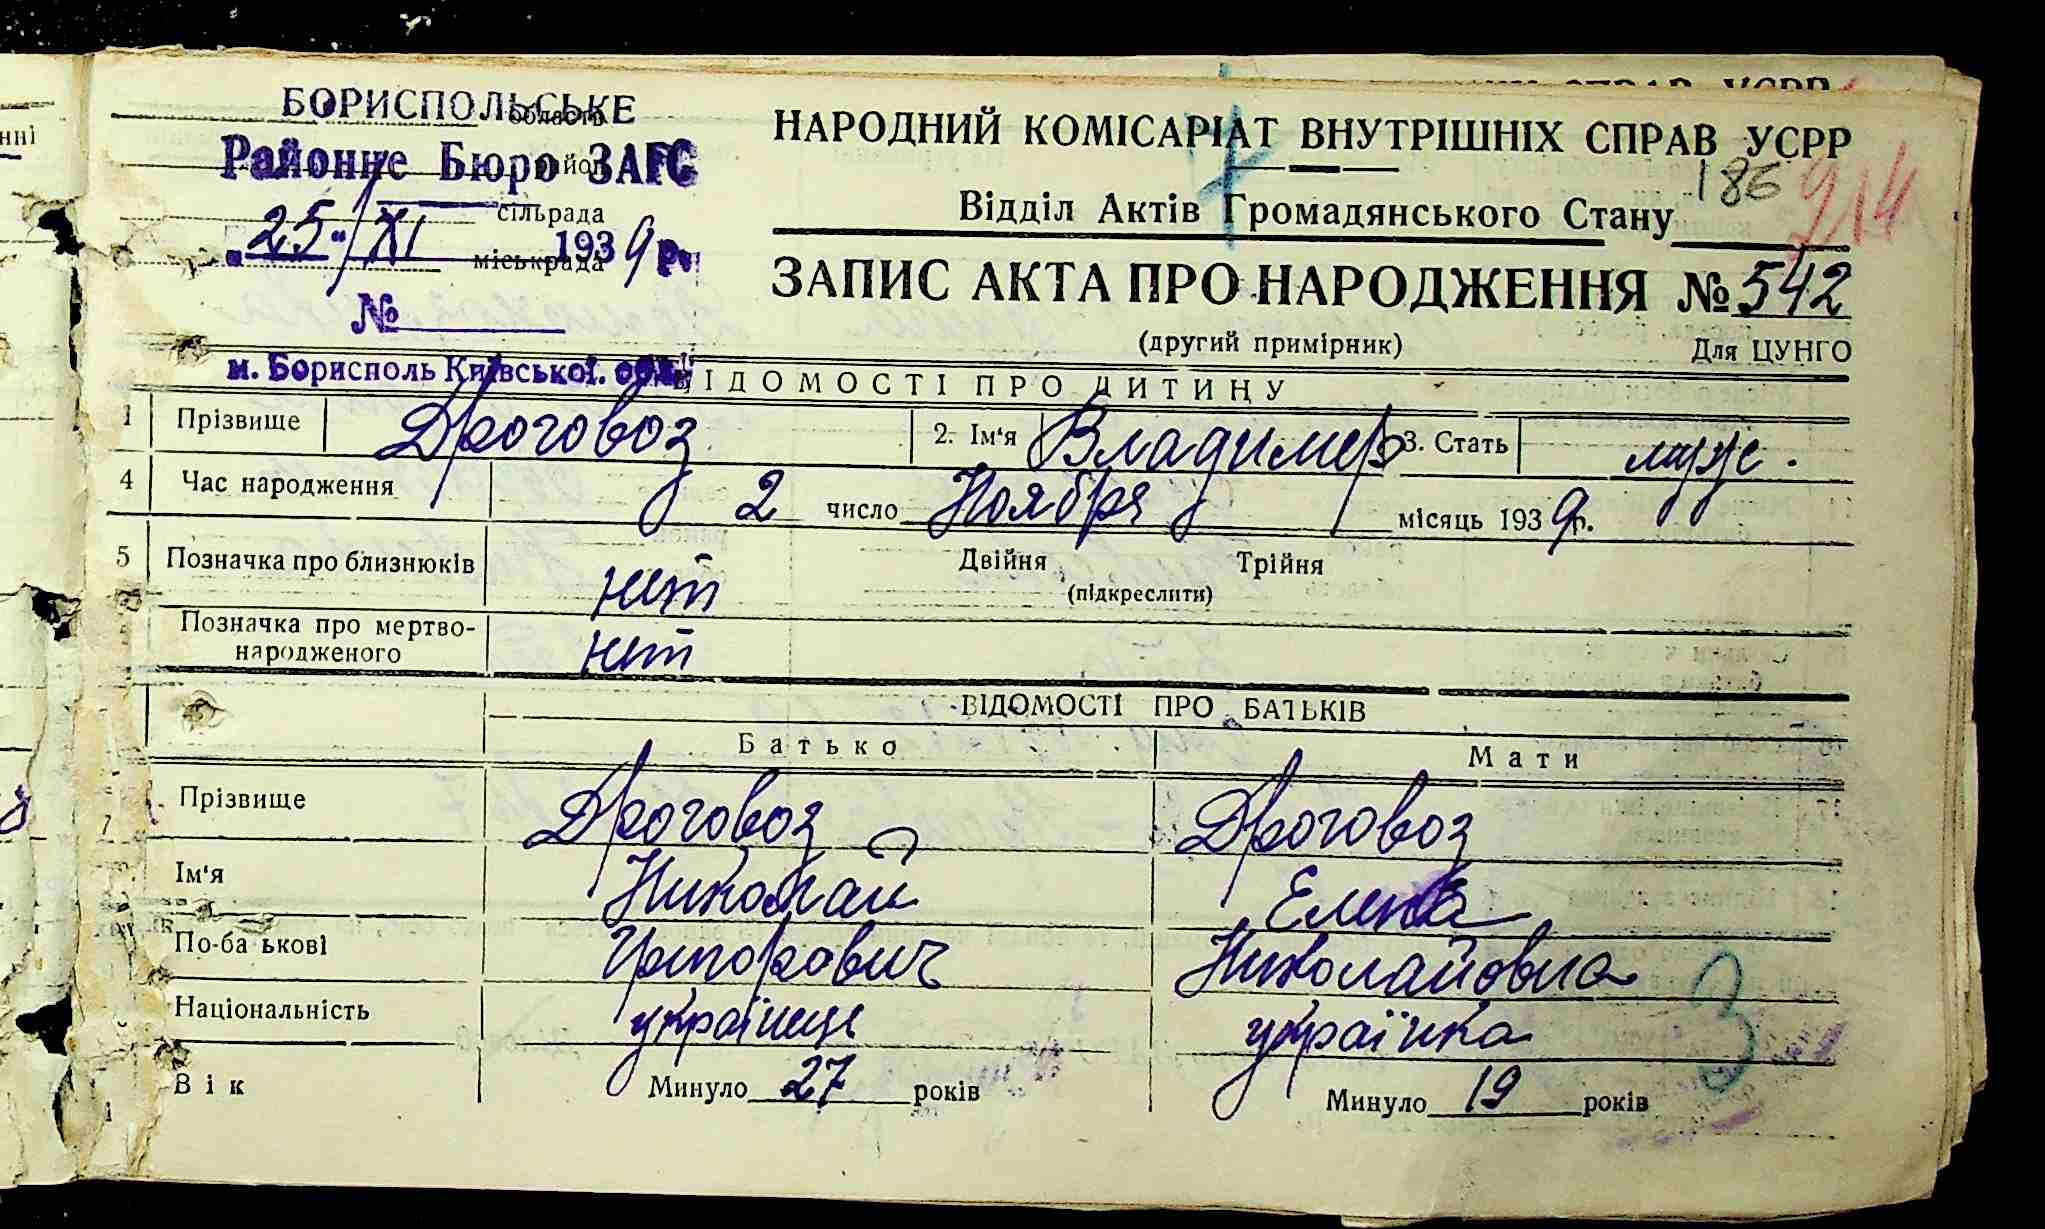 БОРИСПОЛЬСЬКЕ
область
Районне Бюро ЗАГС
сільрада
„25“/XI 1939р.
міськрада
№
м. Борисполь Київської. обл.
НАРОДНИЙ КОМІСАРІАТ ВНУТРІШНІХ СПРАВ УСРР
186 914
Відділ Актів Громадянського Стану
ЗАПИС АКТА ПРО НАРОДЖЕННЯ № 542
(другий примірник) Для ЦУНГО
ВІДОМОСТІ ПРО ДИТИНУ
1 Прізвище Дроговоз 2. Ім‘я Владимер 3. Стать муж.
4 Час народження 2 число Ноября місяць 1939р.
5 Позначка про близнюків нет Двійня Трійня
(підкреслити)
Позначка про мертво-
народженого нет
ВІДОМОСТІ ПРО БАТЬКІВ
Батько Мати
7 Прізвище Дроговоз Дроговоз
Ім‘я Николай Елена
По-ба ькові Григорович Николайовна
Національність українец українка
3
Вік Минуло 27 років Минуло 19 років